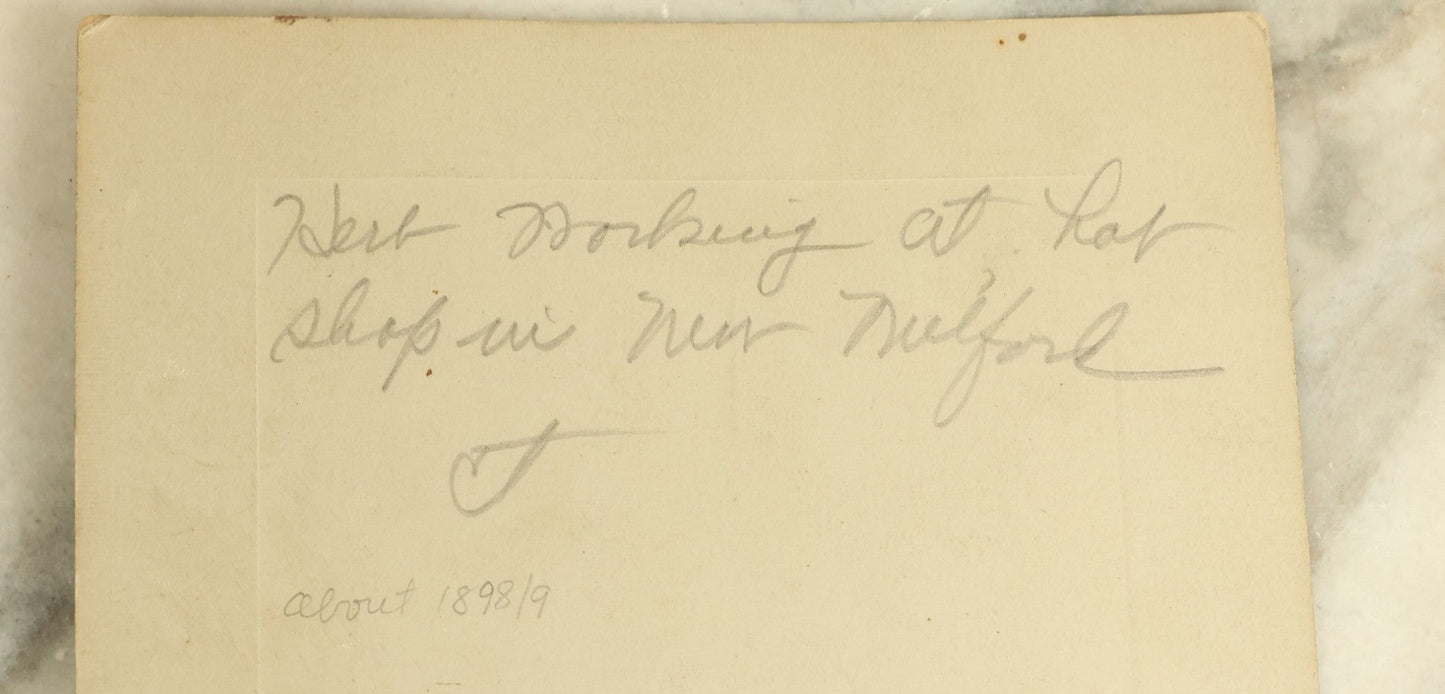 Herb Working at hat
shop in New Milford
CT
about 1898/9